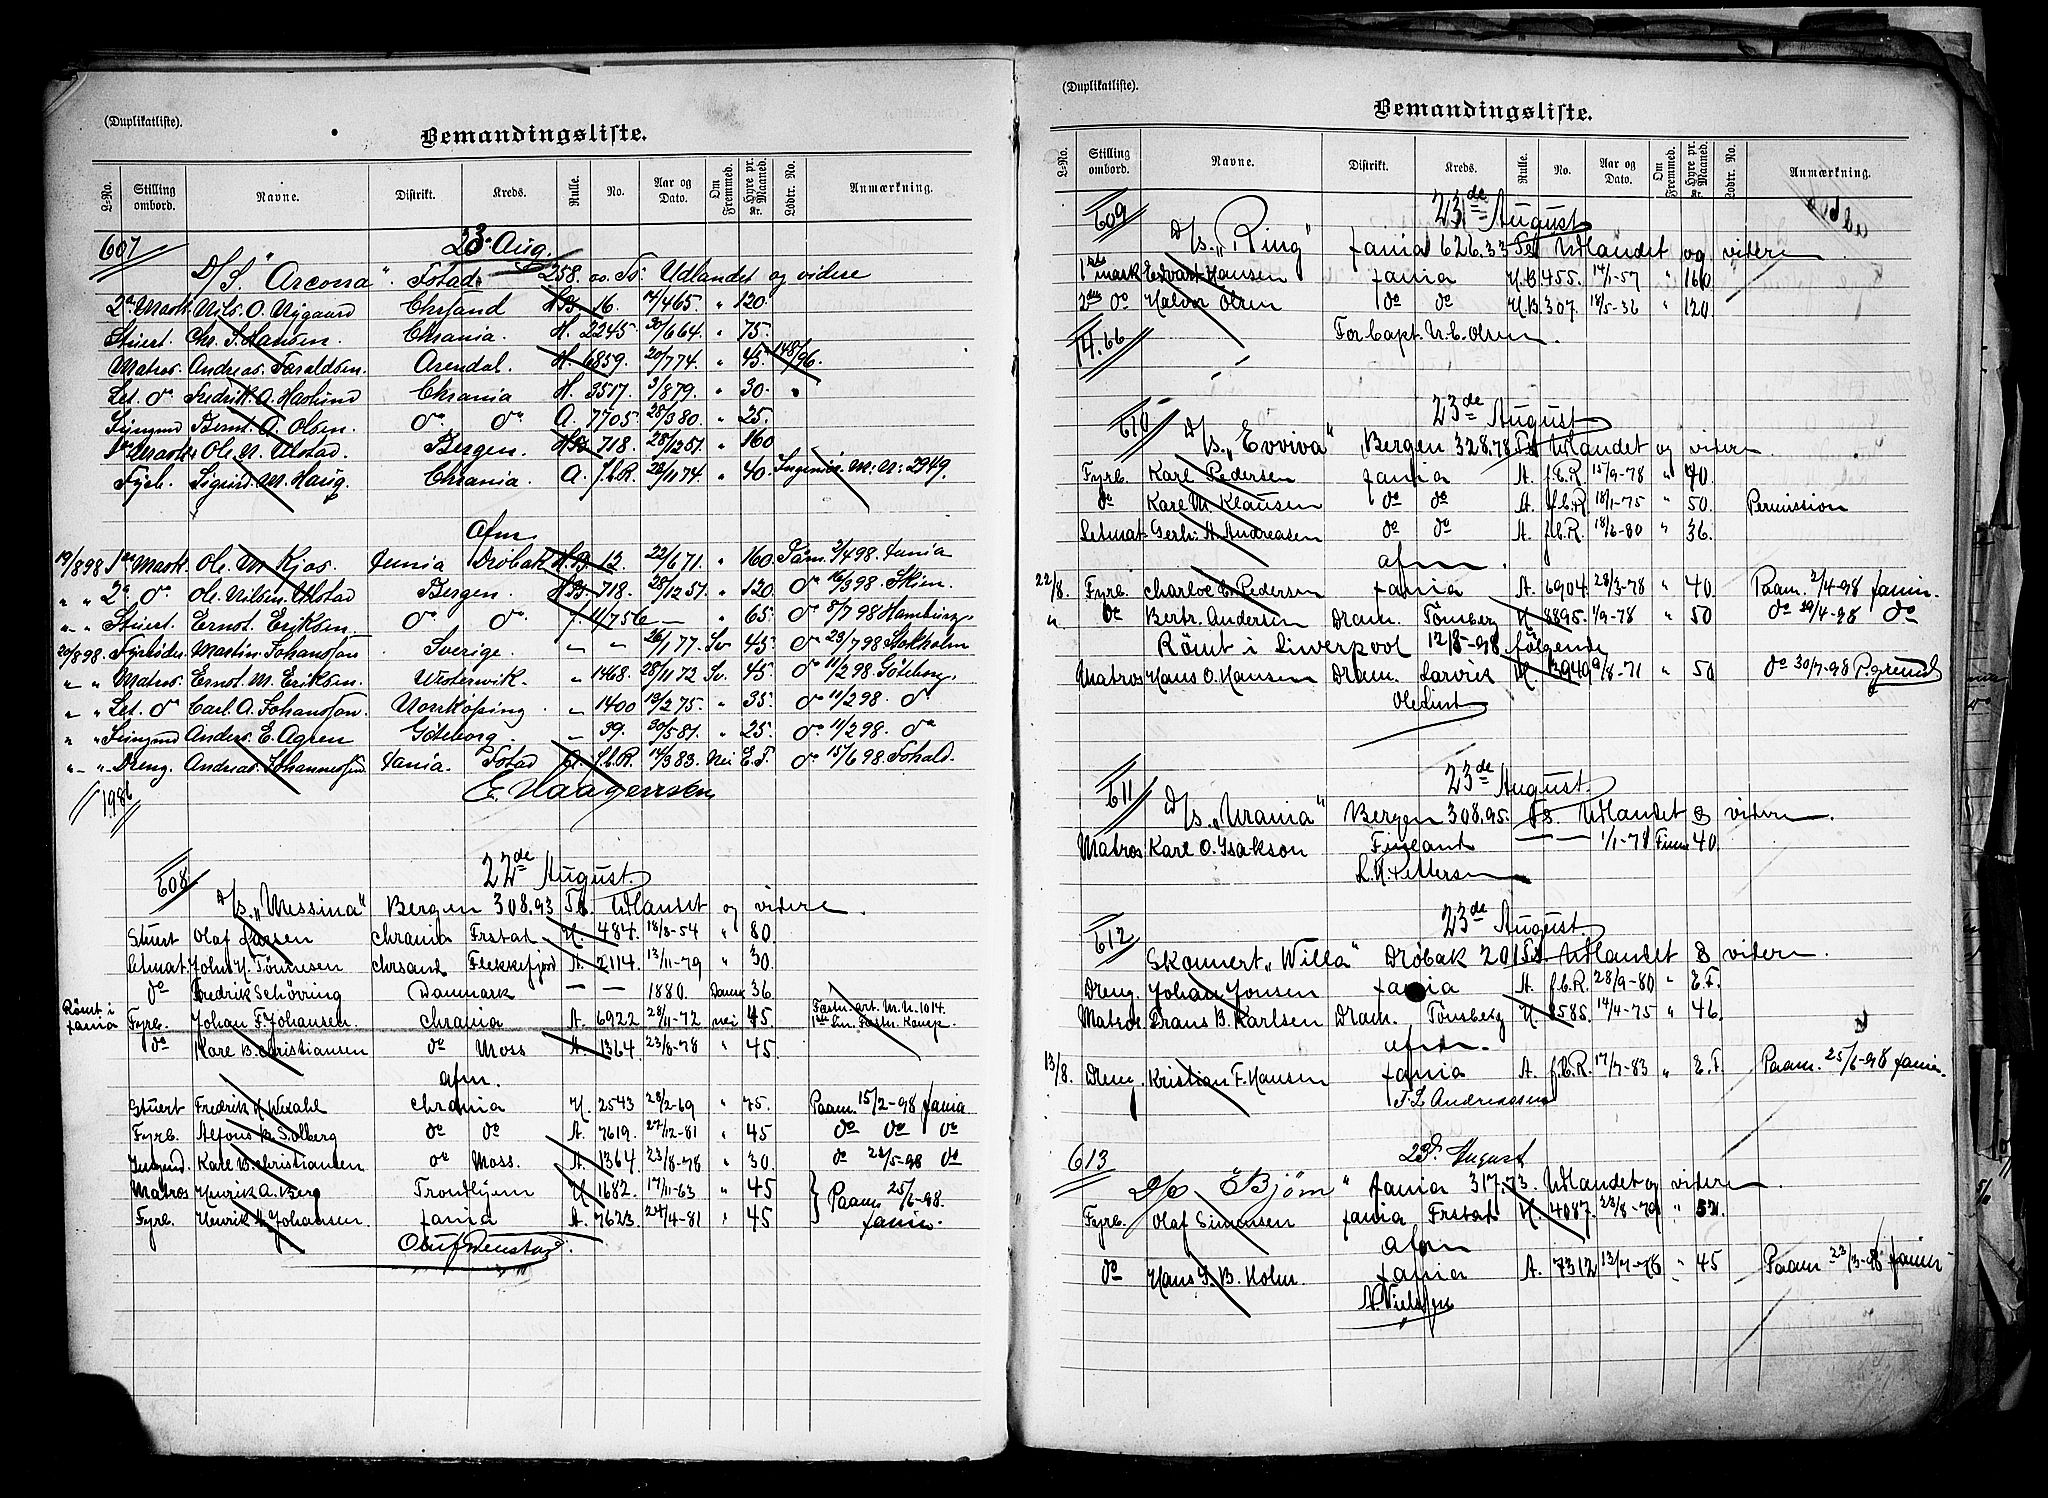 (Duplikatliste).
Bemandingsliste.
L-No. Stilling ombord. Navne. Distrikt. Kreds. Rulle. No. Aar og Dato. Om Fremmed. Hyre pr. Maaned. Kr. Lodtr. No. Anmærkning.
607 23de Aug.
D/S. "Arcona" Fstad 258. Ts: Udlandet og videre
2den Mask. Nils. O. Nygaard Chrsand HB 16. 465. " 120.
Stuert. Chr. S. Hansen. Chrania. H. 2245 30/664. " 75.
Matros. Andreas. Taraldsen. Arendal. H. 6859. 20/774. " 45. 148/96.
Let. do Fredrik. A. Haslund Chrania H. 3517. 3/879. " 30.
Jungmd Bernt. A. Olsen. do do A. 7705. 28/380. " 25.
Mask. Ole. N. Ulstad. Bergen. HB 718. 28/1251. " 160
Fyrb. Sigurd. M. Haug. Chrania. A. f.b.R. 26/1174. " 40. M: N: 2949.
Afm.
19/898 1ste Mask. Ole. M. Kjos. Fania Drøbak H.B. 12. 22/671. " 160. Paam. 2/498. Fania
" " 2d do Ole. Nilsen Ulstad Bergen. HB 718. 28/1251. " 120. do 16/398. Skien.
" " Stuert. Ernst. Eriksen. do do f. 11/756 — " 65. do 8/798 Hamburg.
20/898. Fyrbøder Martin. Johansson. Sverige. " " 26/177. Sv 45. do 23/798 Stokholm
" " Matros. Ernst. M. Eriksen. Westerwik. " 1468. 28/1172 Sv. 45. do 11/298. Göteborg.
" " Let. do Carl. A. Johansson. Norrköping " 1400 19/275. " 35. do 11/298. do
" " Jungmd Anders. E. Agren Göteborg. " 39. 30/581. " 25. do 11/298. do
" " Dreng. Andreas. Johannessen. Fania. Fstad A. f.b.R. 14/383. Nei E.T. do 15/698. Fshald.
1986 E. Haagensen
608 22de August.
D/s. „Messina" Bergen 308.93 Ts. Udlandet og videre.
Stuert Olaf Larsen Chrania Frstad H. 484. 18/3-54 " 80.
Letmat. John H. Tönnesen Chrsand Flekkefjord A. 2114. 13/11-79 " 30.
do Fredrik Schövring Danmark — — 1880. Dansk 36
Römt i Fania Fyrb. Johan F. Johansen. Chrania A. 6922 28/11-72 nei 45.
do Kare B. Christiansen do Moss A. 1364 23/8-78 " 45.
afm.
Stuert Fredrik H. Wexahl Chrania H. 2543 28/2-69 " 75. Paam. 15/2-98 Fania
Fyrb. Alfons M. Solberg do do A. 7619. 27/12-81 " 45 do do do
Jungmd. Kare B. Christiansen do Moss. A. 1364 23/8-78 " 30. do 28/5-98 do
Matros Henrik A. Berg Trondhjem H. 1682. 17/11-63 " 45 Paam. 25/6-98.
Fyrb. Henrik A. Johansen. Fania A. 7623. 24/4-81 " 45 Fania.
Oluf Wenstad.
(Duplikatliste).
Bemandingsliste.
L-No. Stilling ombord. Navne. Distrikt. Kreds. Rulle. No. Aar og Dato. Om Fremmed. Hyre pr. Maaned. Kr. Lodtr. No. Anmærkning.
609 23de August
D/s. „Ring" Fania 626.33 Ts. Udlandet og videre
1ste mask Edvart Hansen Fania H.B. 455. 14/1-57 " 160
2den do Halvor Olsen do do H.B. 307. 18/5-36 " 120
14.66 For Capt. N. C. Olsen.
610 23de August
D/s. „Evviva" Bergen 328.78 Ts. Udlandet og videre.
Fyrb. Karl Pedersen Fania A. f.b.R. 15/9-78 " 40.
do Karl M Klausen do do A. f.b.R. 18/1-75 " 50. Permission
Letmat. Gerh: A Andreasen do do A. f.b.R. 18/6-80 " 36.
afm.
22/8. Fyrb. Charles E. Pedersen Fania A. 6904. 28/3-78 " 40 Paam. 2/4-98 Fania.
" do Bertr. Andersen Dram. Tönsberg H. 8895. 1/9-78 " 50 do 29/4-98 do
Römt i Liverpool 12/8-98 følgende
Matros Hans O. Hansen Dram. Larvik H. 3940 9/8-71 " 50 do 30/7-98 P.grund
Ole List
611 23de August.
D/s. „Urania" Bergen 308.95. Ts. Udlandet & videre.
Matros Karl O. Isakson Finland — — 1/1-78 Finne 40.
L. H. Pettersen
612 23de August.
Skonnert „Willa" Drøbak 201 Ts. Udlandet & videre.
Dreng. Johan Jonsen Fania A. f.b.R. 28/9-80 " E.T.
Matros Frans B. Karlsen Dram. Tönsberg H. 8585. 14/4-75 " 46.
afm.
13/8. Dreng. Kristian F. Hansen Fania A. f.b.R. 17/7-83 " E.T. Paam. 25/6-98 Fania.
T. L. Andreassen
613 23de August
D/s "Bjørn" Fania 317,73. Udlandet og videre
Fyrb. Olaf Simensen Fania Frstad H. 4087. 23/8-79 " 52.
Afm
do Hans S. B. Holm. Fania A. 7312 13/7-78 " 45 Paam. 23/3-98 Fania
N. Nielssen